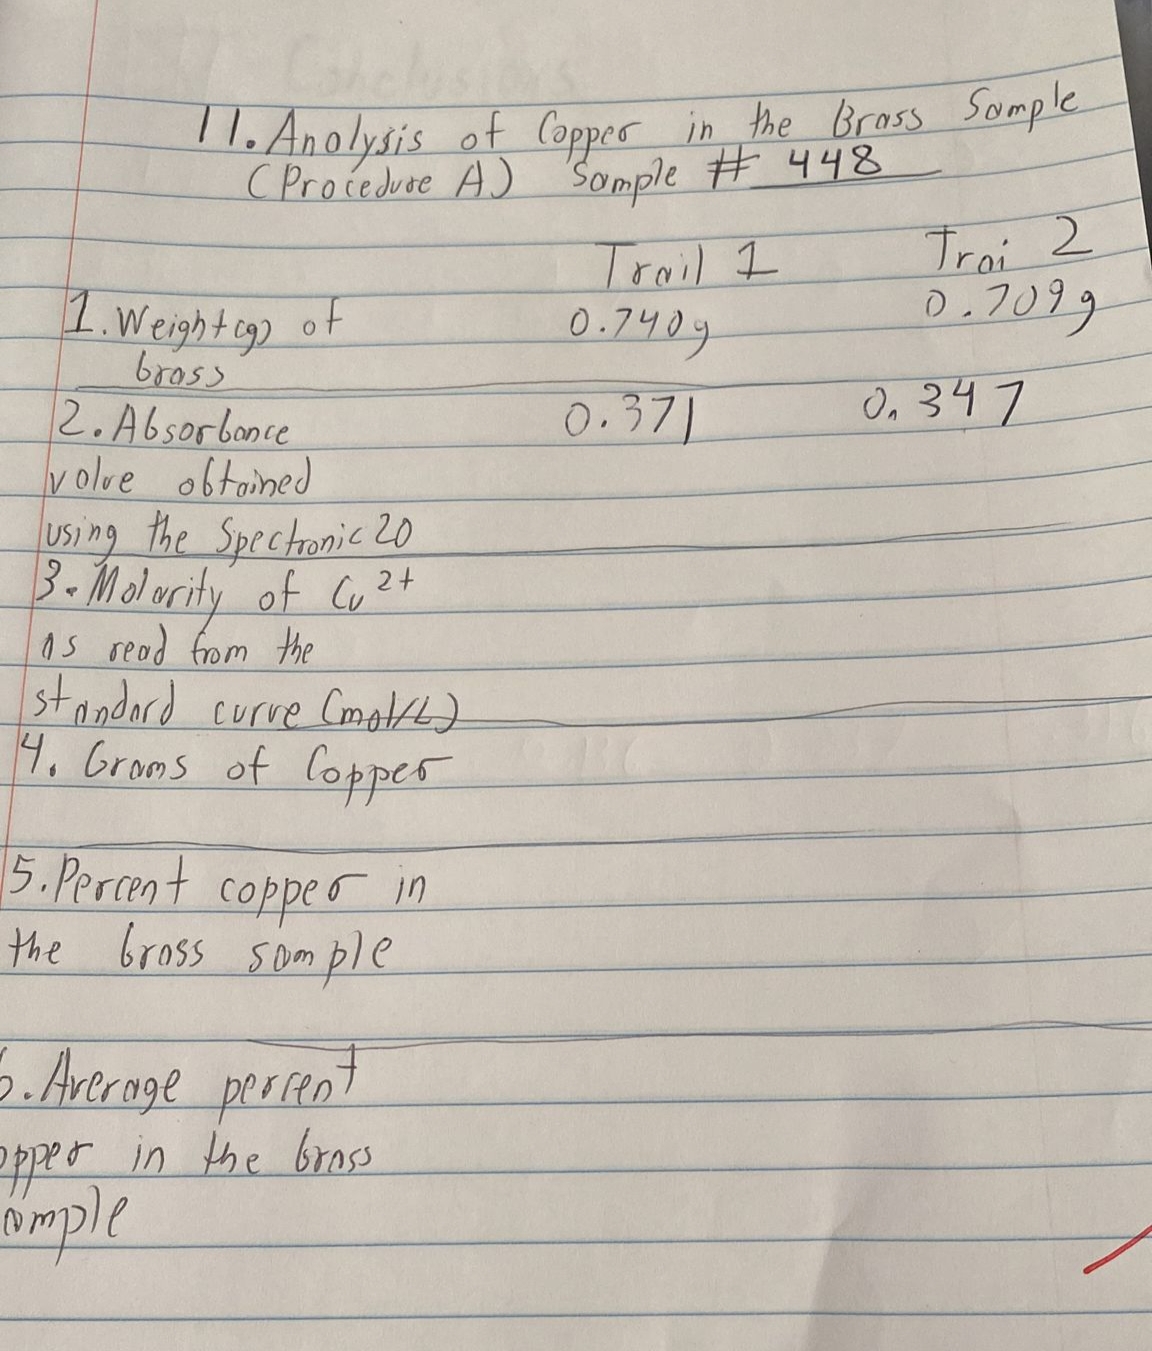 11. Analysis of Copper in the Brass Sample
(Procedure A) Sample # 448
Trail 1 Trai 2
1. Weight(g) of 0.740g 0.709g
brass
2. Absorbance 0.371 0.347
value obtained
using the Spectronic 20
3. Molarity of Cu2+
as read from the
standard curve (mol/L)
4. Grams of Copper
5. Percent copper in
the brass sample
6. Average percent
opper in the brass
ample